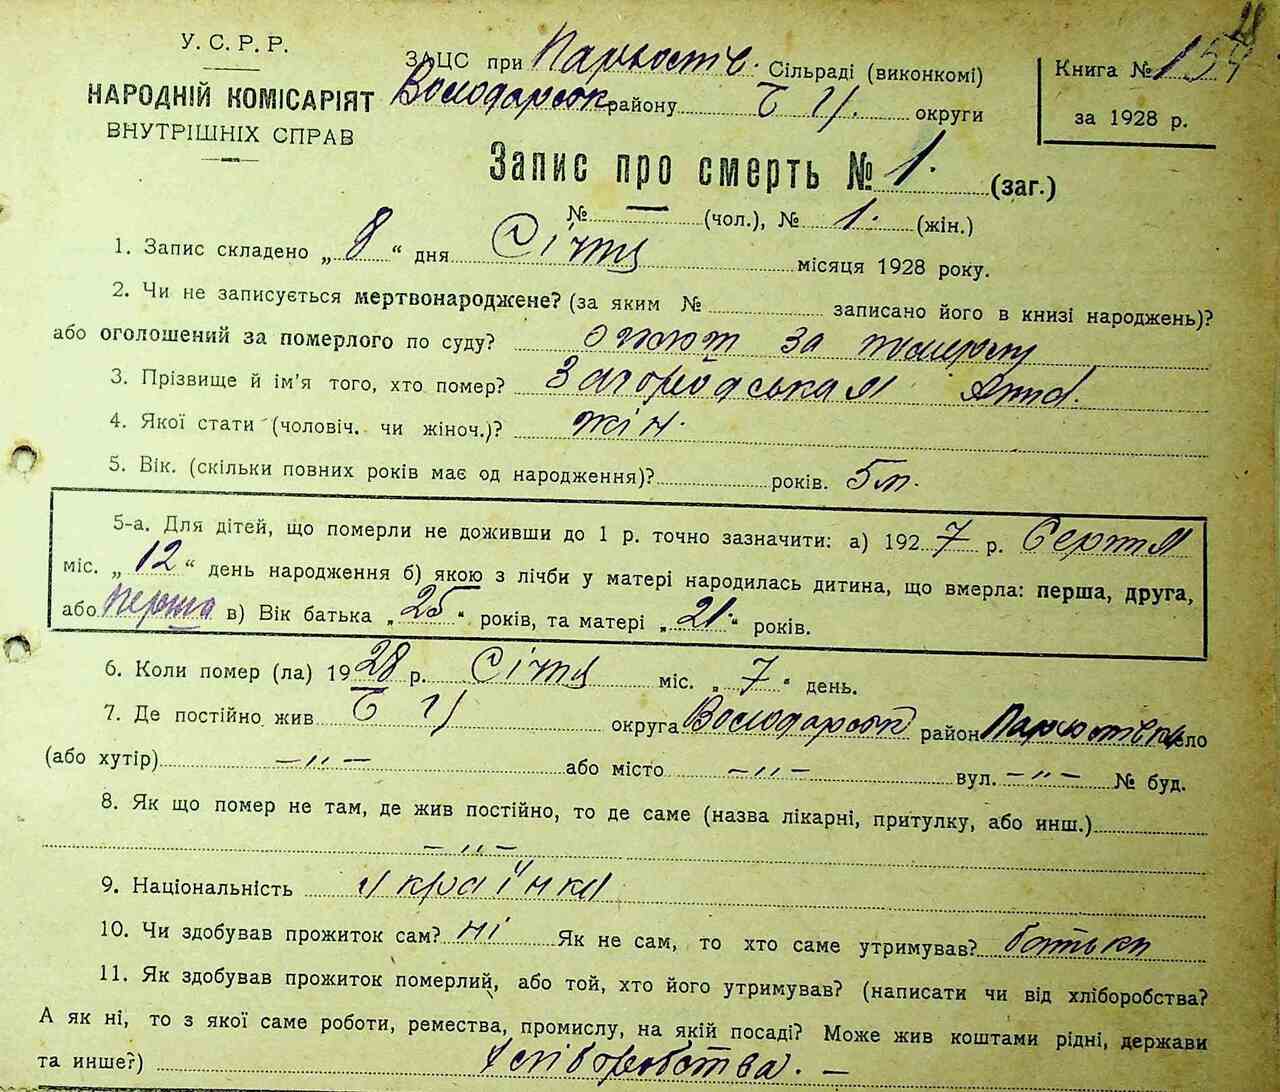 28
У. С. Р. Р.
НАРОДНІЙ КОМІСАРІЯТ
ВНУТРІШНІХ СПРАВ
ЗАЦС при Пархостів. Сільраді (виконкомі)
Володарськ району Б Ц. округи
Книга № 154
за 1928 р.
Запис про смерть № 1. (заг.)
№ — (чол.), № 1. (жін.)
1. Запис складено „ 8 “ дня Січня місяця 1928 року.
2. Чи не записується мертвонароджене? (за яким № записано його в книзі народжень)?
або оголошений за померлого по суду? за померлу
3. Прізвище й ім’я того, хто помер?
4. Якої стати (чоловіч. чи жіноч.)? жін.
5. Вік. (скільки повних років має од народження)? років. 5 м.
5-а. Для дітей, що померли не доживши до 1 р. точно зазначити: а) 192 7 р. Серпня
міс. „ 12 “ день народження б) якою з лічби у матері народилась дитина, що вмерла: перша, друга,
або перша в) Вік батька „ 25 “ років, та матері „ 21. “ років.
6. Коли помер (ла) 19 28 р. Січня міс. „ 7 “ день.
7. Де постійно жив Б Ц округа Володарськ район село
(або хутір) –„– або місто –„– вул. –„– № буд.
8. Як що помер не там, де жив постійно, то де саме (назва лікарні, притулку, або инш.)
–„–
9. Національність Українка
10. Чи здобував прожиток сам? ні Як не сам, то хто саме утримував? батьки
11. Як здобував прожиток померлий, або той, хто його утримував? (написати чи від хліборобства?
А як ні, то з якої саме роботи, ремества, промислу, на якій посаді? Може жив коштами рідні, держави
та инше?) Хліборобства. –